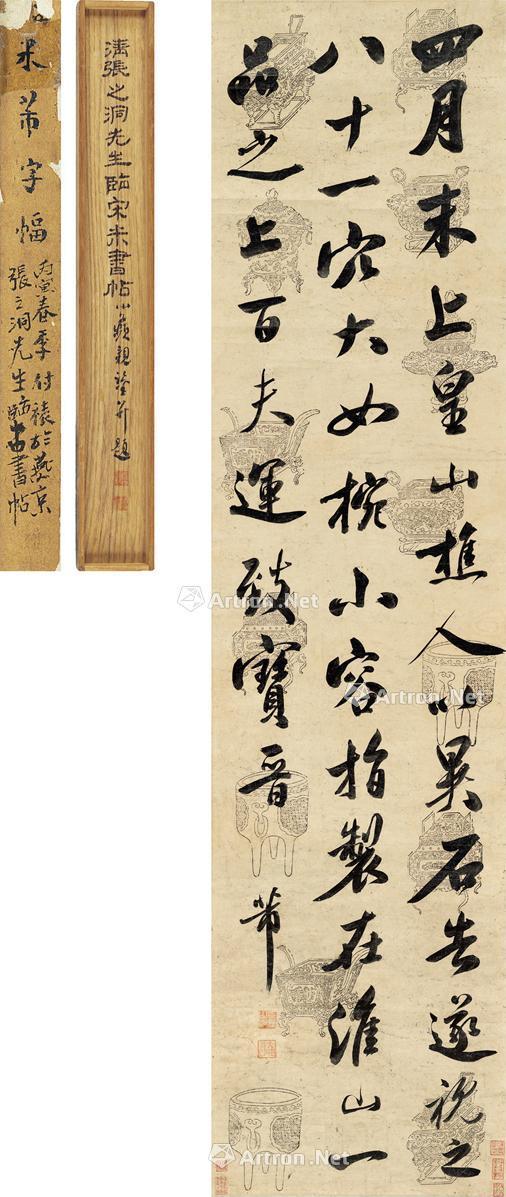 四月末上皇山樵人以異石告遂視之
八十一穴大如椀小容指製在淮山一
品之上百夫運致寶晉
芾
清張之洞先生臨宋米書帖
米芾字幅
丙寅春季付裱於燕京
張之洞先生
書帖
Artron.Net
Artron.Net
Artron.Net
Artron.Net